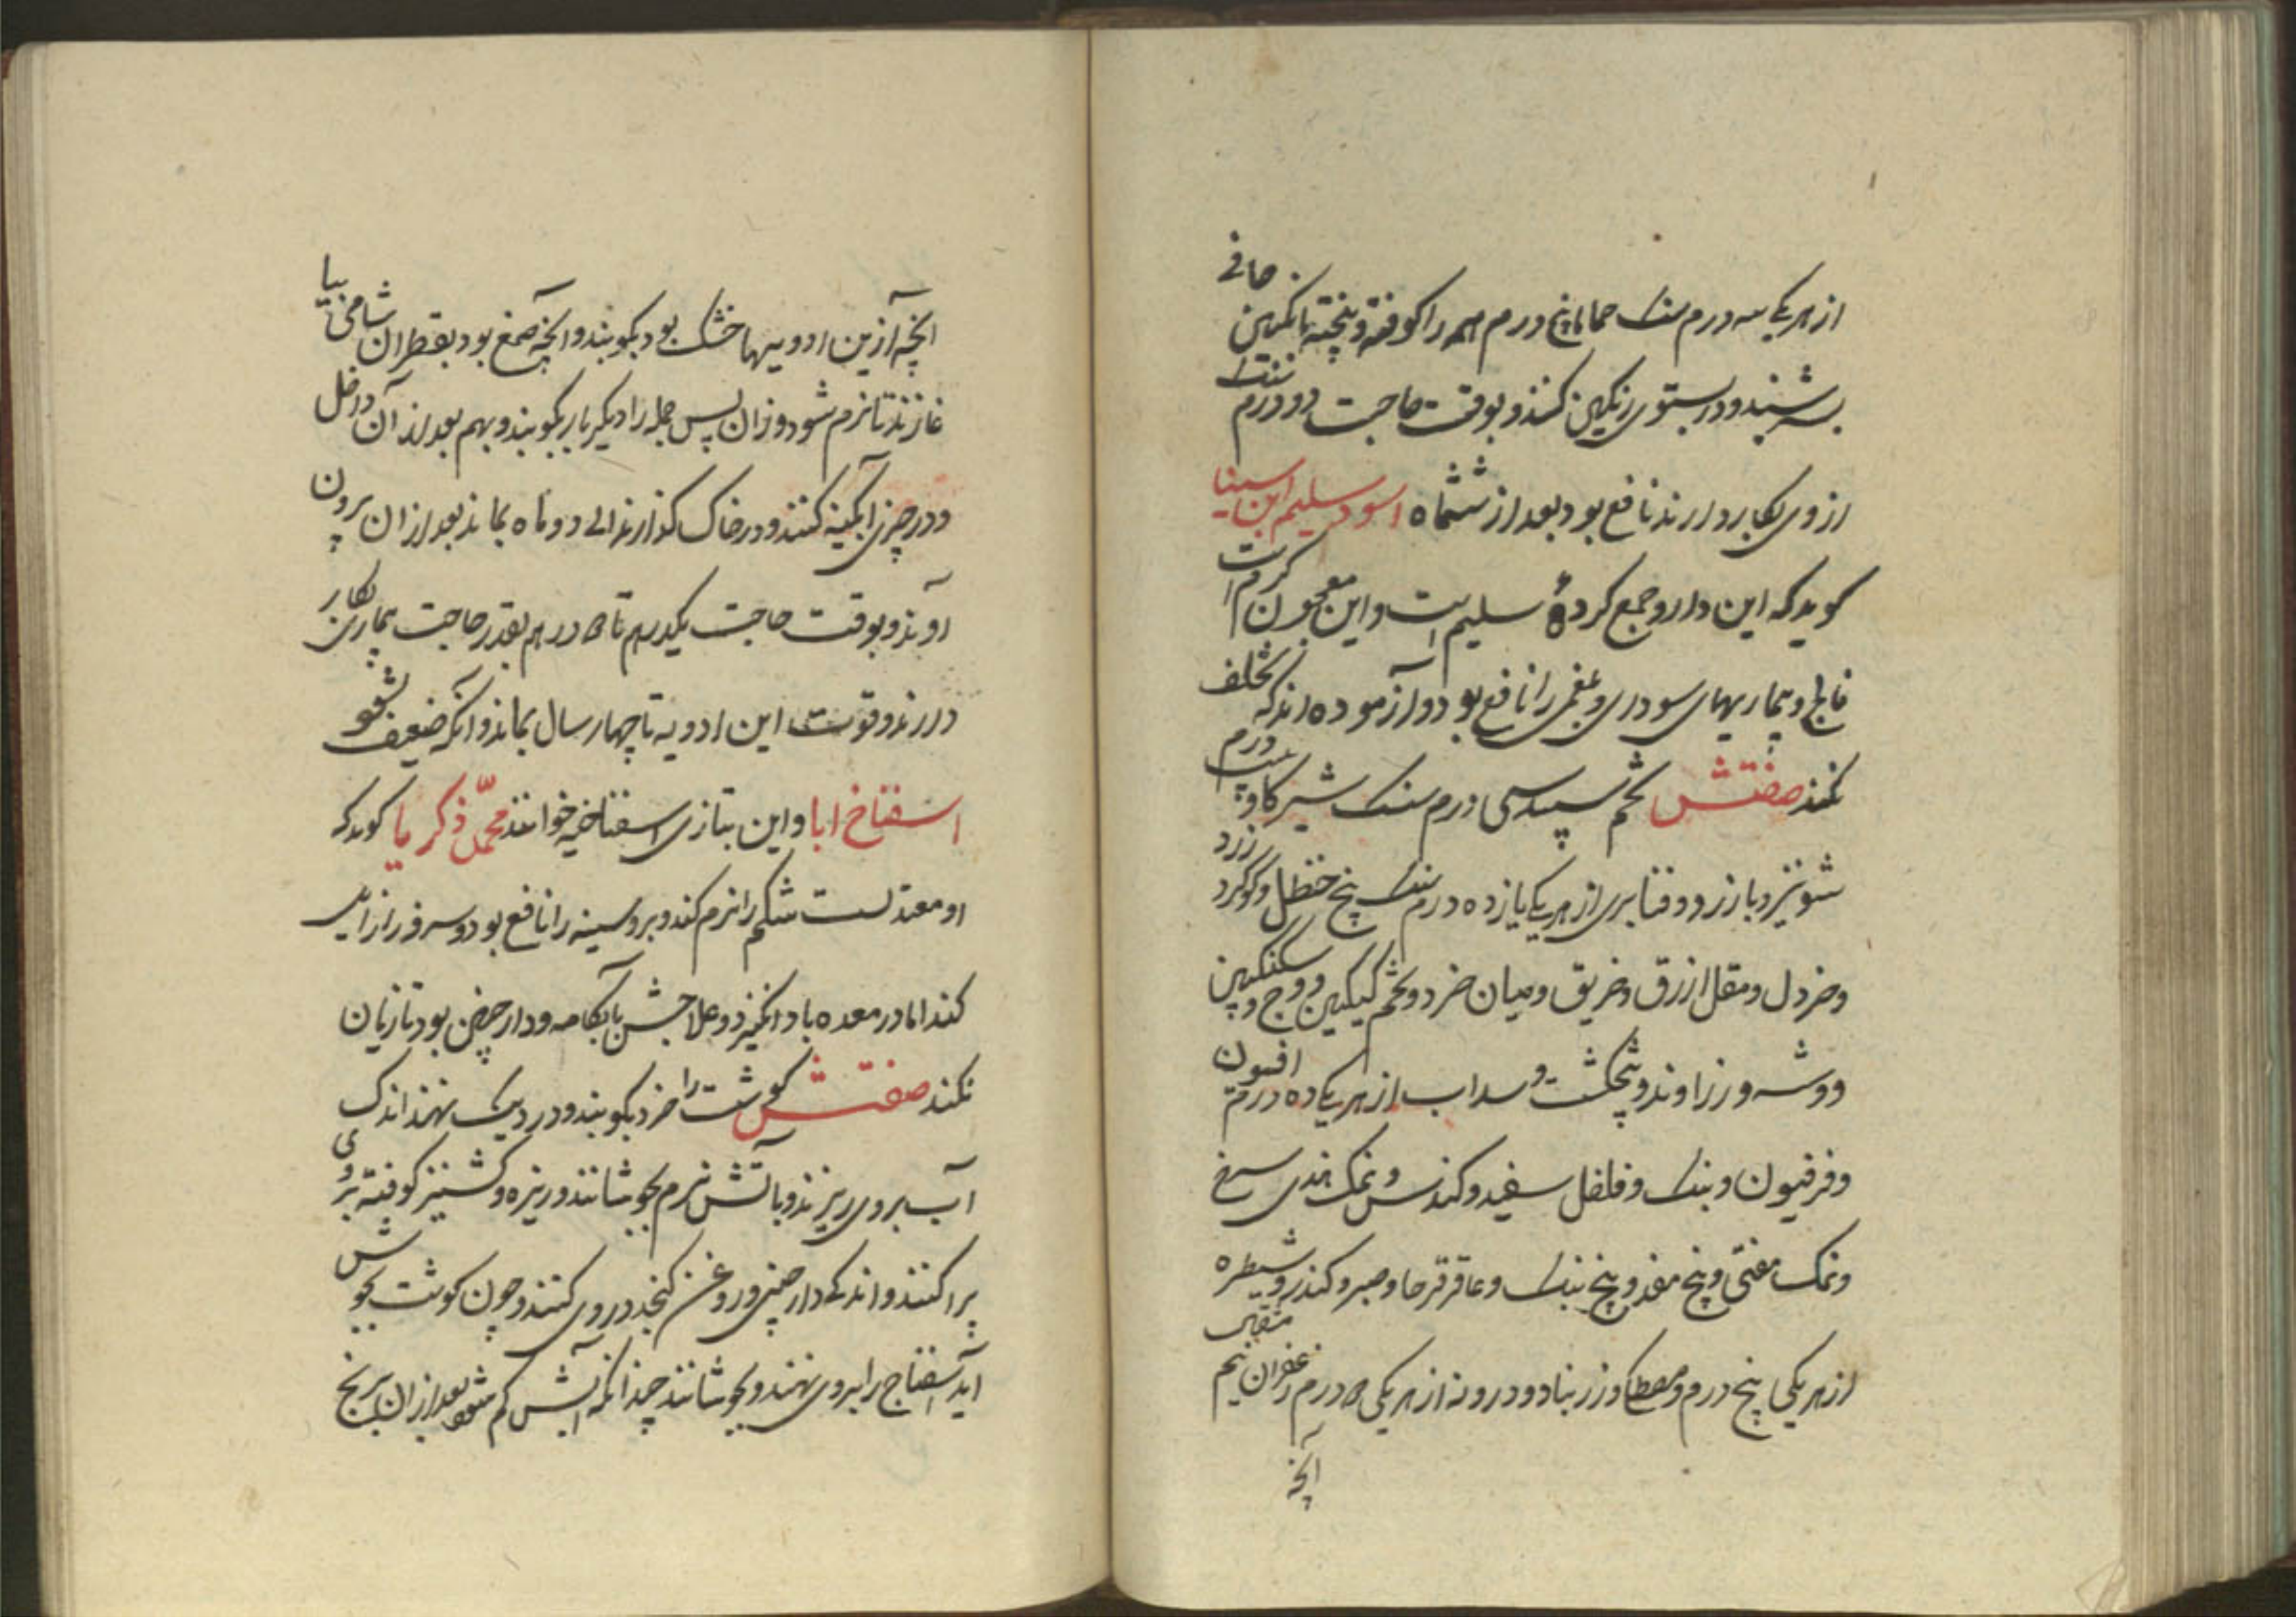 از هر یکی سه درم سنک حماما پنج درم همه را کوفته و بیخته بانکبین صافی
بسرشند و در بستوی رنکین کنند و بوقت حاجت دو درم سنک
از وی بکار دارند نافع بود بعد از ششماه اسود سلیم ابن سینا
کوید که این دارو جمع کردهٔ سلیم است و این معجون کرم است
فالج و بیماریهای سوداوی و بلغمی را نافع بود و آزموده اند که تخلف
نکند صفتش تخم سپید سی درم سنک شیر کاو بیست درم
شونیز و بارزد و قنابری از هر یکی یازده درم سنک بیخ حنظل و کوکرد زرد
و خردل و مقل ازرق و خربق و میان خرد و تخم کیکین و وج و سکنکبین
و وشه و زراوند و پنجنکشت و سداب از هر یکی ده درم افیون
و فرفیون و بنک و فلفل سفید و کندس و نمک هندی سرخ
و نمک مغنی و بیخ مغد و بیخ بنک و عاقرقرحا و صبر و کندر و شیطره
از هر یکی پنج درم و مصطکا و زرنباد و درونه از هر یکی ۵ درم زعفران نیم مثقال
آنچه
انچه آزین ادویها خشک بود بکوبند و انچه صمغ بود بقطران شامی بیا
غازند تا نرم شود وزان پس جمله را دیکر بار بکوبند و بهم بعد از آن داخل
و در چیزی آبکینه کنند و در خاک کذارند الی دو ماه بماند بعد از ان برون
آوند و بوقت حاجت یکدرهم تا ۵ درهم بقدر حاجت بیماری بکار
دارند و قوت این ادویه تا چهار سال بماند و آنکه ضعیف شود
اسفناخ ابا و این بتازی اسفناخیه خوانند محمّد ذکریا کوید که
او معتدلست شکم را نرم کند و برو سینه را نافع بود و سرفه را زایل
کند اما در معده باد انکیزد و علاجش بآبکامه و دارچینی بود تا زیان
نکند صفتش کوشت را خرد بکوبند و در دیک نهند اندک
آب بروی ریزند و باتش نرم بجوشانند و زیره و کشنیز کوفته بروی
پراکنند و اندکی دارچینی و روغن کنجد در وی کنند و چون کوشت بجوش
آید اسفناج را بروی نهند و بجوشانند چندانکه آبش کم شود بعد از ان برنج